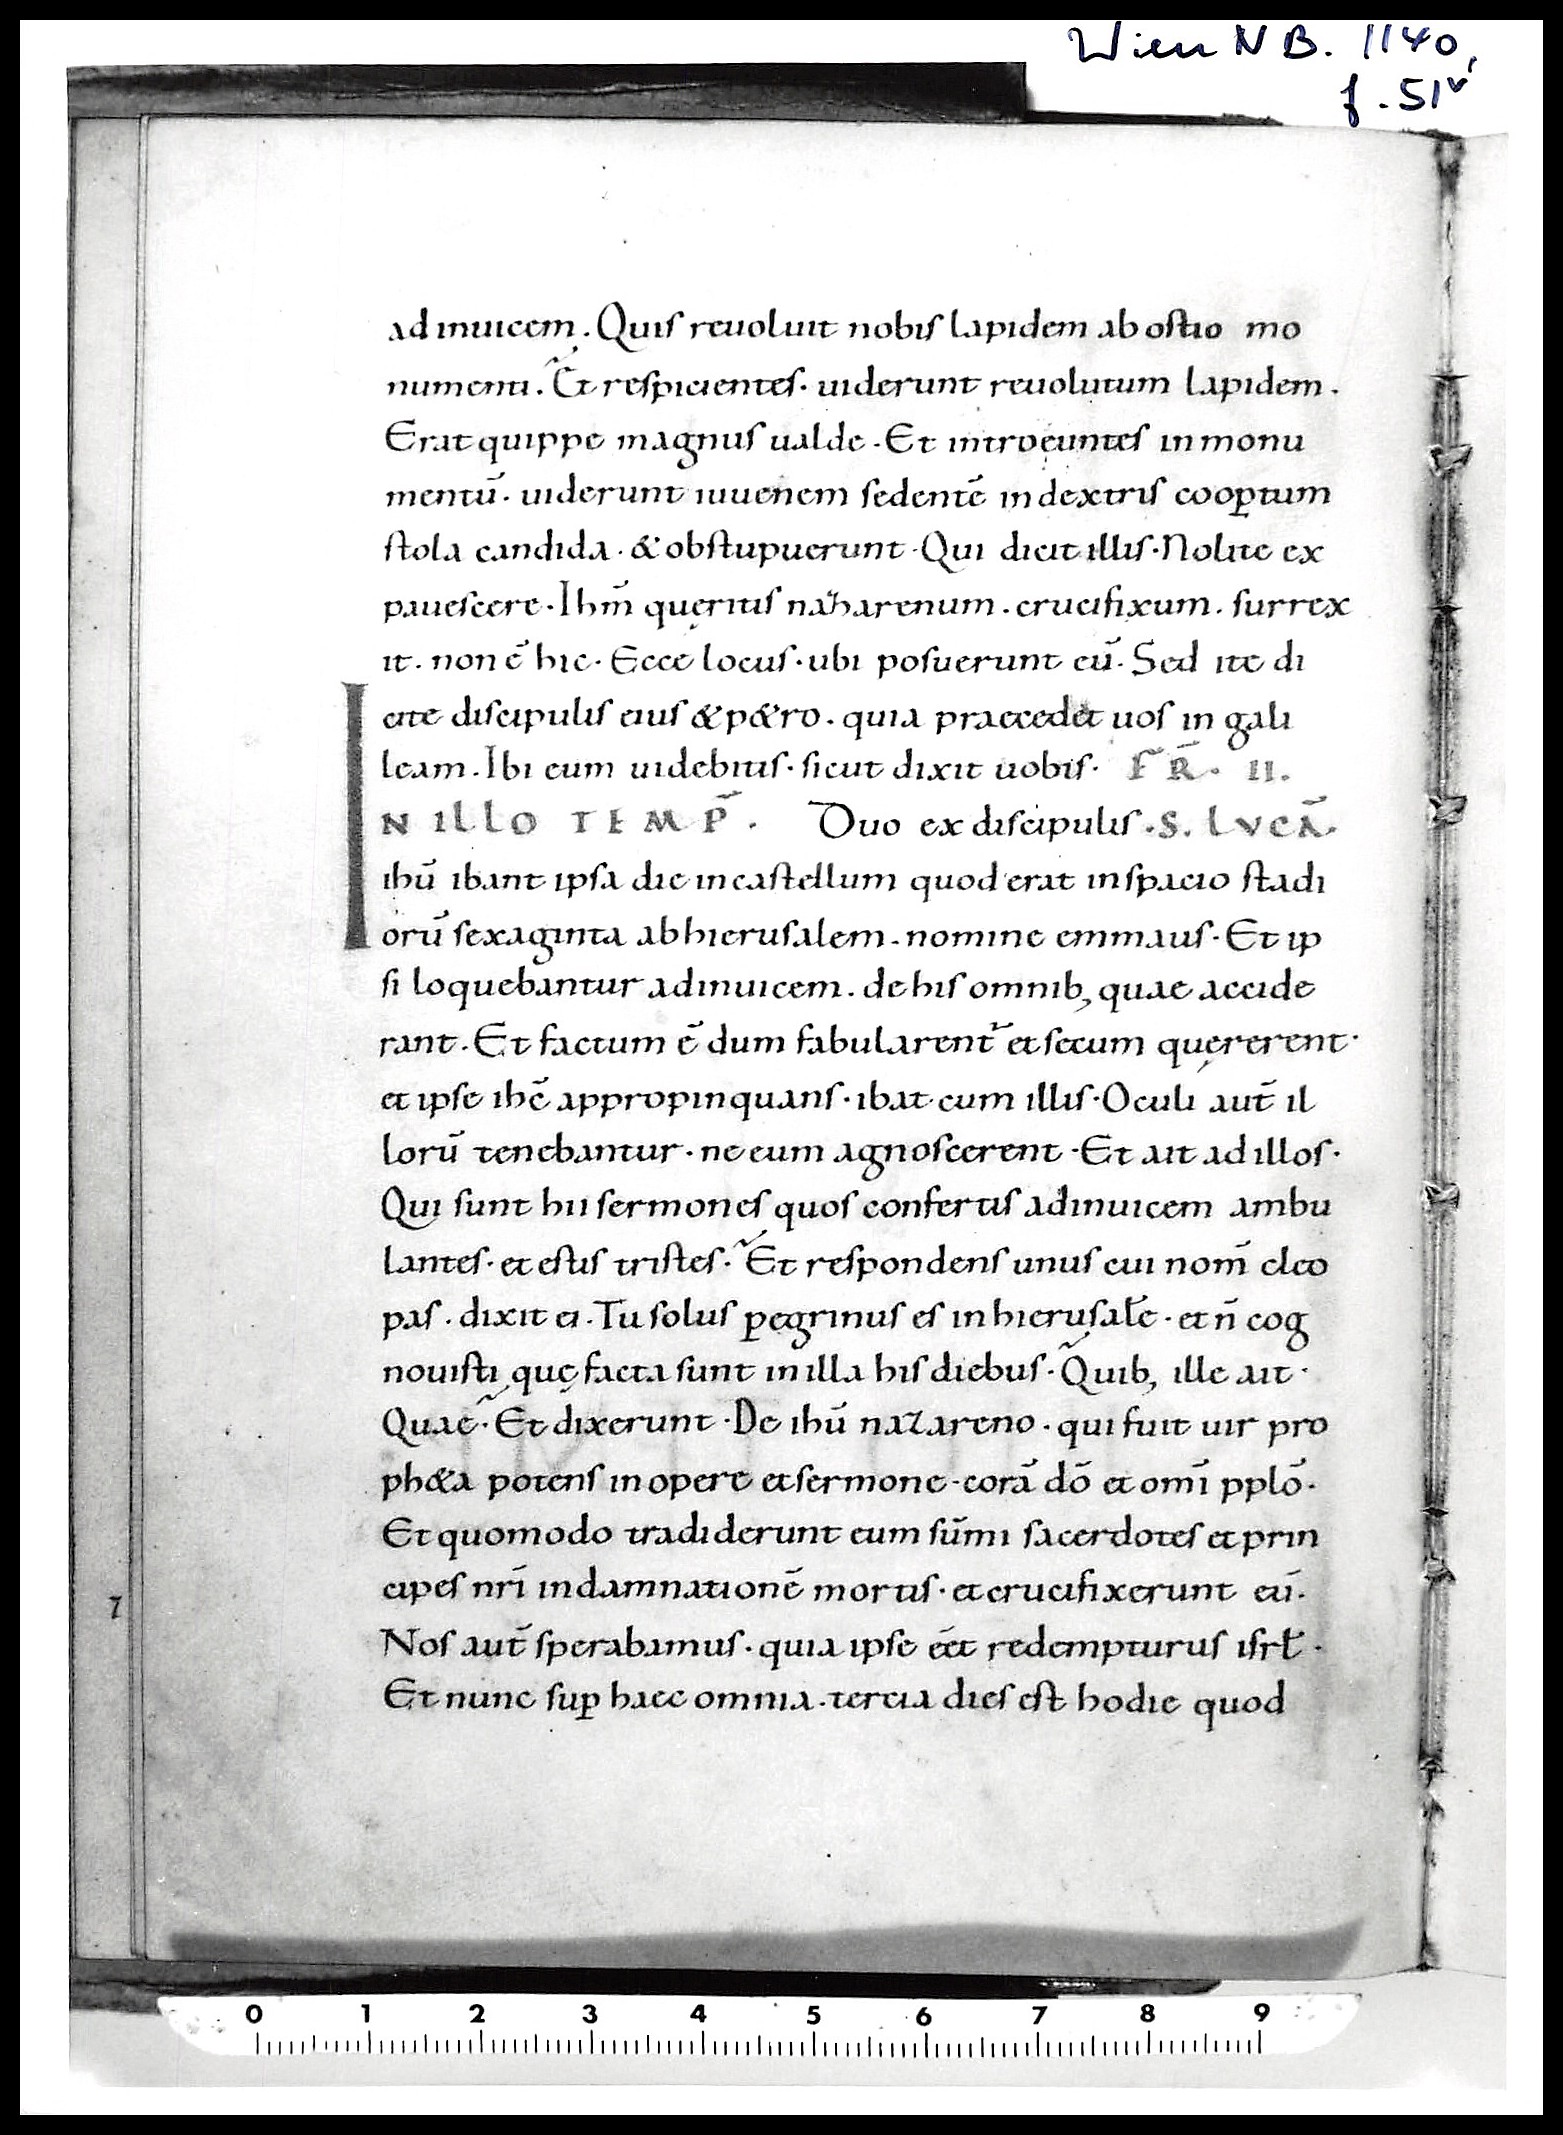 Wien NB. 1140,
f. 51v
ad inuicem. Quis reuoluit nobis lapidem ab ostio mo
numenti. Et respicientes· uiderunt reuolutum lapidem.
Erat quippe magnus ualde. Et introeuntes in monu
mentū· uiderunt iuuenem sedentē in dextris coop̄tum
stola candida· & obstupuerunt· Qui dicit illis· Nolite ex
pauescere· Ihm̄ quęritis nazarenum. crucifixum. surrex
it. non ē hic· Ecce locus· ubi posuerunt eū· Sed ite di
cite discipulis eius & p&ro. quia praecedet uos in gali
leam. Ibi eum uidebitis· sicut dixit uobis· F̄R̄. II.
IN ILLO TEMP̄. Duo ex discipulis· S. LVCĀ·
ihū ibant ipsa die in castellum quod erat in spacio stadi
orū sexaginta ab hierusalem. nomine emmaus· Et ip
si loquebantur ad inuicem. de his omnib; quae accide
rant. Et factum ē dum fabularent̄ et secum quęrerent·
et ipse ihc̄ appropinquans· ibat cum illis· Oculi aut̄ il
lorū tenebantur· ne eum agnoscerent· Et ait ad illos·
Qui sunt hii sermones quos confertis ad inuicem ambu
lantes· et estis tristes· Et respondens unus cui nom̄ cleo
pas. dixit ei. Tu solus p̱egrinus es in hierusal̄e· et n̄ cog
nouisti quę facta sunt in illa his diebus· Quib; ille ait·
Quae· Et dixerunt· De ihū nazareno· qui fuit uir pro
ph&a potens in opere et sermone· corā dō et omī pplō·
Et quomodo tradiderunt eum sūmi sacerdotes et prin
cipes nrī in damnationē mortis· et crucifixerunt eū·
Nos aut̄ sperabamus· quia ipse eēt redempturus isrl̄·
Et nunc sup̱ haec omnia. tercia dies est hodie quod
0 1 2 3 4 5 6 7 8 9